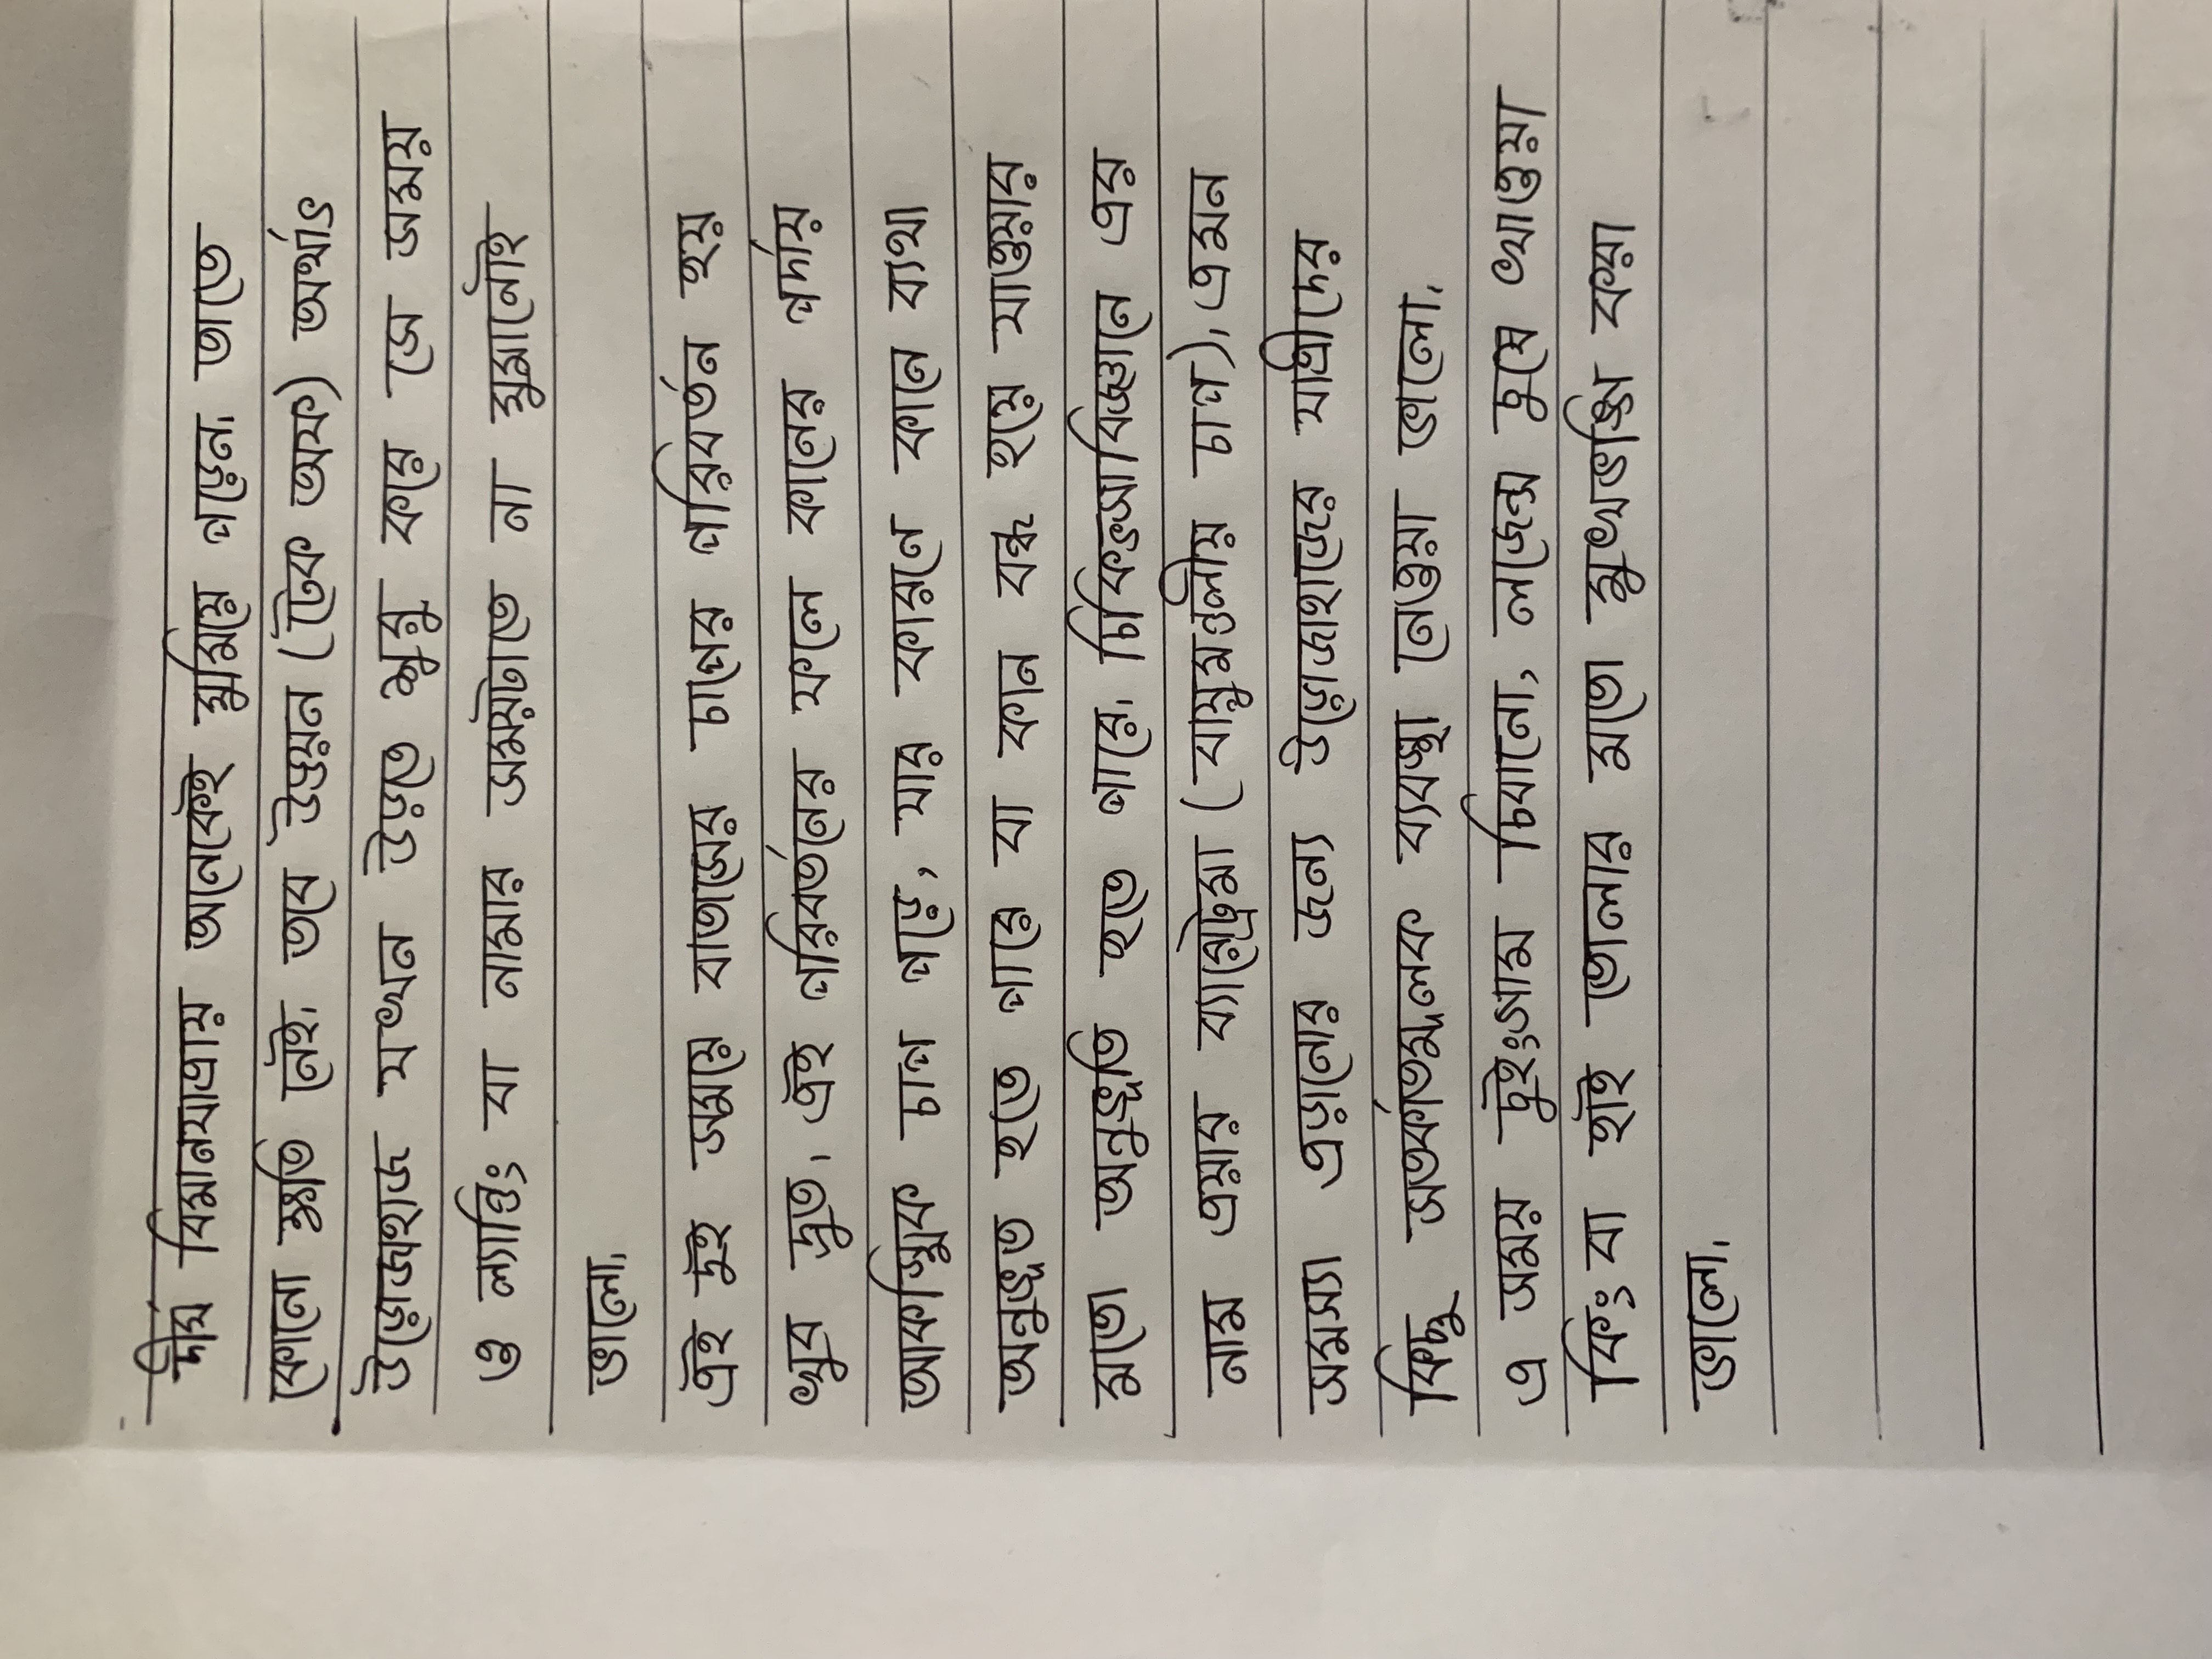 দীর্ঘ বিমানযাত্রায় অনেকেই ঘুমিয়ে পড়েন। তাতে
কোনো ক্ষতি নেই। তবে উড্ডয়ন (টেক অফ) অর্থাৎ
উড়োজাহাজ যখন উড়তে শুরু করে সে সময়
ও ল্যান্ডিং বা নামার সময়টাতে না ঘুমানোই
ভালো।
এই দুই সময়ে বাতাসের চাপের পরিবর্তন হয়
খুব দ্রুত। এই পরিবর্তনের ফলে কানের পর্দায়
আকস্মিক চাপ পড়ে, যার কারণে কানে ব্যথা
অনুভূত হতে পারে বা কান বন্ধ হয়ে যাওয়ার
মতো অনুভূতি হতে পারে। চিকিৎসাবিজ্ঞানে এর
নাম এয়ার ব্যারোট্রমা (বায়ুমণ্ডলীয় চাপ)। এমন
সমস্যা এড়ানোর জন্য উড়োজাহাজের যাত্রীদের
কিছু সতর্কাতমূলক ব্যবস্থা নেওয়া ভালো।
এ সময় চুইংগাম চিবানো, লজেন্স চুষে খাওয়া
কিংবা হাই তোলার মতো মুখভঙ্গি করা
ভালো।